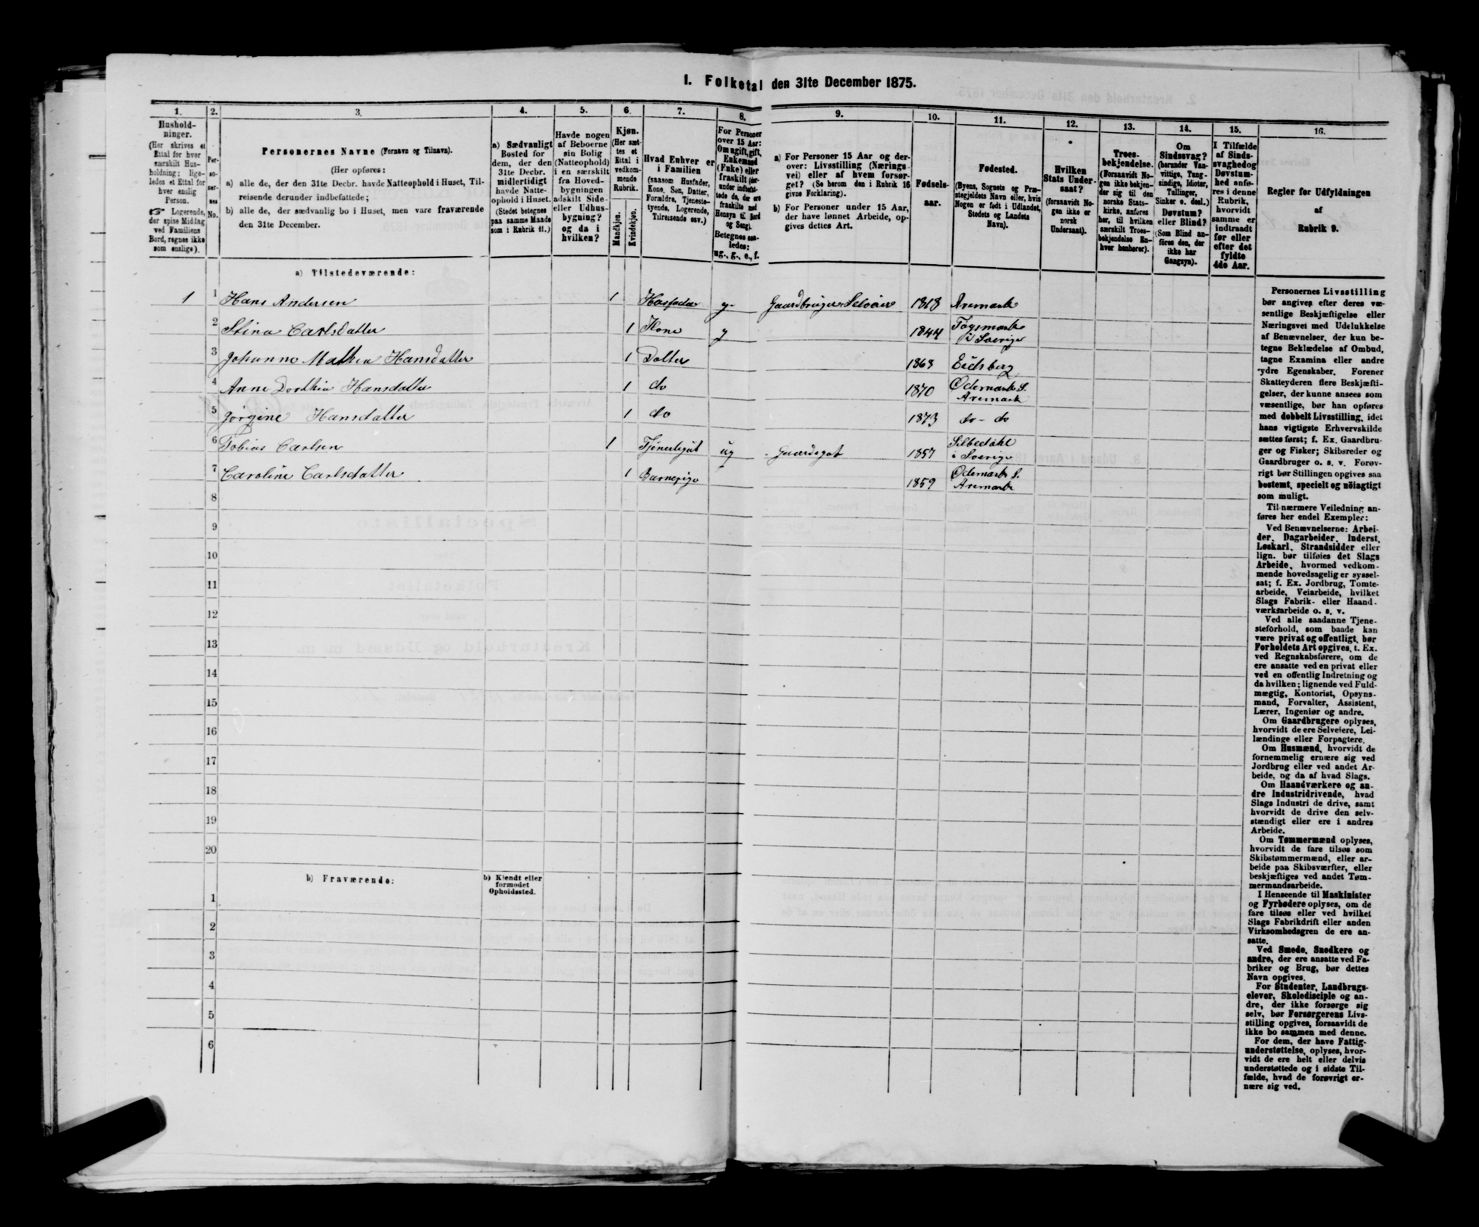 I. Folketal den 31te December 1875.
1.
Husholdninger.
(Her skrives et Ettal for hver særskilt Husholdning; ligeledes et Ettal for hver enslig Person.
☞ Logerende, der spise Middag ved Familiens Bord, regnes ikke som enslige).
2.
Personernes No.
3.
Personernes Navne (Fornavn og Tilnavn).
(Her opføres:
a) alle de, der den 31te Decbr. havde Natteophold i Huset, Tilreisende derunder indbefattede;
b) alle de, der sædvanlig bo i Huset, men vare fraværende den 31te December.
4.
a) Sædvanligt Bosted for dem, der den 31te Decbr. midlertidigt havde Natteophold i Huset.
(Stedet betegnes paa samme Maade som i Rubrik 11.)
5.
Havde nogen af Beboerne sin Bolig (Natteophold) i en særskilt fra Hovedbygningen adskilt Side- eller Udhusbygning? og da i hvilken?
6.
Kjøn.
(Her sættes et Ettal i vedkommende Rubrik.
Mandkjøn.
Kvindekjøn.
7.
Hvad Enhver er i Familien
(saasom Husfader, Kone, Søn, Datter, Forældre, Tjenestetyende, Logerende, Tilreisende osv.)
8.
For Personer over 15 Aar: Om ugift, gift, Enkemand (Enke) eller fraskilt
Betegnes saaledes: ug., g., e., f.
9.
a) For Personer 15 Aar og derover: Livsstilling (Næringsvei) eller af hvem forsørget? (Se herom den i Rubrik 16 givne Forklaring).
b) For Personer under 15 Aar, der have lønnet Arbeide, opgives dettes Art.
10.
Fødselsaar.
11.
Fødested.
(Byens, Sognets og Præstegjeldets Navn eller, hvis Nogen er født i Udlandet, Stedets og Landets Navn).
12.
Hvilken Stats Undersaat?
(forsaavidt Nogen ikke er norsk Undersaat).
13.
Troesbekjendelse.
(Forsaavidt Nogen ikke bekjender sig til den norske Statskirke, anføres her, til hvilken særskilt Troesbekjendelse En hver henhører).
14.
Om Sindssvag?
(herunder Vanvittige, Tungsindige, Idioter, Tullinger, Sinker o. desl.)
Døvstum? eller Blind?
(Som Blind anføres den, der ikke har Gangsyn).
15.
I Tilfælde af Sindssvaghed og Døvstumhed anføres i denne Rubrik, hvorvidt samme er indtraadt før eller efter det fyldte 4de Aar.
16.
Regler for Udfyldningen af Rubrik 9.
a) Tilstedeværende:
1 1 Hans Andersen 1 Husfader g Gaardbruger Selveier 1813 Aremark
2 Stina Carlsdatter 1 Kone g 1844 i Sverige
3 Johanne Mathea Hansdatter 1 Datter 1863 Eidsberg
4 Anne Dorthea Hansdatter 1 do 1870 Ødemark S. Aremark
5 Jørgine Hansdatter 1 do 1873 do - do
6 Tobias Carlsen 1 Tjenestegut ug Gaardsgut 1857 i Sverige
7 Caroline Carlsdatter 1 Barnepige 1859 Ødemark S. Aremark
8
9
10
11
12
13
14
15
16
17
18
19
20
b) Fraværende:
b) Kjendt eller formodet Opholdssted.
1
2
3
4
5
6
Personernes Livsstilling
bør angives efter deres væ-
sentlige Beskjæftigelse eller
Næringsvei med Udelukkelse
af Benævnelser, der kun be-
tegne Beklædelse af Ombud,
tagne Examina eller andre
ydre Egenskaber. Forener
Skatteyderen flere Beskjæfti-
gelser, der kunne ansees som
væsentlige, bør han opføres
med dobbelt Livsstilling, idet
hans vigtigste Erhvervskilde
sættes først; f. Ex. Gaardbru-
ger og Fisker; Skibsreder og
Gaardbruger o. s. v. Forøv-
rigt bør Stillingen opgives saa
bestemt, specielt og nöiagtigt
som muligt.
Til nærmere Veiledning an-
føres her endel Exempler:
Ved Benævnelserne: Arbei-
der, Dagarbeider, Inderst,
Løskarl, Strandsidder eller
lign. bør tilføies det Slags
Arbeide, hvormed vedkom-
mende hovedsagelig er syssel-
sat; f. Ex. Jordbrug, Tomte-
arbeide, Veiarbeide, hvilket
Slags Fabrik- eller Haand-
værksarbeide o. s. v.
Ved alle saadanne Tjene-
steforhold, som baade kan
være privat og offentligt, bør
Forholdets Art opgives, t. Ex.
ved Regnskabsførere, om de
ere ansatte ved en privat eller
ved en offentlig Indretning og
da hvilken; lignende ved Fuld-
mægtig, Kontorist, Opsyns-
mand, Forvalter, Assistent,
Lærer, Ingeniør og andre.
Om Gaardbrugere oplyses,
hvorvidt de ere Selveiere, Lei-
lændinge eller Forpagtere.
Om Husmænd, hvorvidt de
fornemmelig ernære sig ved
Jordbrug eller ved andet Ar-
beide, og da af hvad Slags.
Om Haandværkere og an-
dre Industridrivende, hvad
Slags Industri de drive, samt
hvorvidt de drive den selv-
stændigt eller ere i andres
Arbeide.
Om Tømmermænd oplyses,
hvorvidt de fare tilsøs som
Skibstømmermænd, eller ar-
beide paa Skibsværfter, eller
beskjæftiges ved andet Tøm-
mermandsarbeide.
I Henseende til Maskinister
og Fyrbødere oplyses, om de
fare tilsøs eller ved hvilket
Slags Fabrikdrift eller anden
Virksomhedsgren de ere an-
satte.
Ved Smede, Snedkere og
andre, der ere ansatte ved Fa-
briker og Brug, bør dettes
Navn opgives.
For Studenter, Landbrugs-
elever, Skoledisciple og an-
dre, der ikke forsørge sig
selv, bør Forsørgerens Livs-
stilling opgives, forsaavidt de
ikke bo sammen med denne.
For dem, der have Fattig-
understøttelse, oplyses, hvor-
vidt de ere helt eller delvis
understøttede og i sidste Til-
fælde, hvad de forøvrigt er-
nære sig ved.